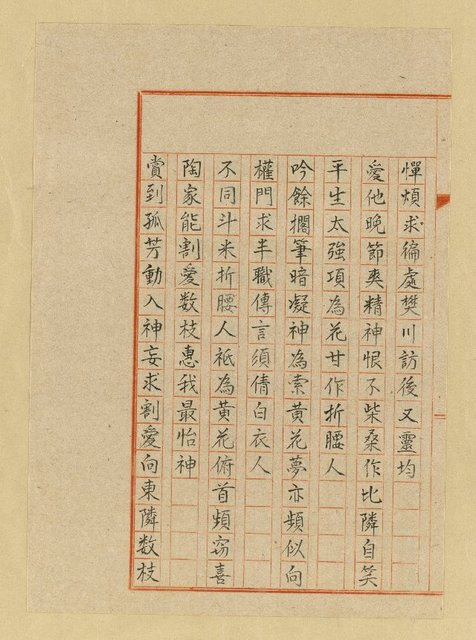 憚煩求徧處樊川訪後又靈均
愛他晚節爽精神恨不柴桑作比隣自笑
平生太強項為花甘作折腰人
吟餘擱筆暗凝神為索黃花夢亦頻似向
權門求半職傳言須倩白衣人
不同斗米折腰人祇為黃花俯首頻窃喜
陶家能割愛数枝惠我最怡神
賞到孤芳動入神妄求割愛向東隣数枝